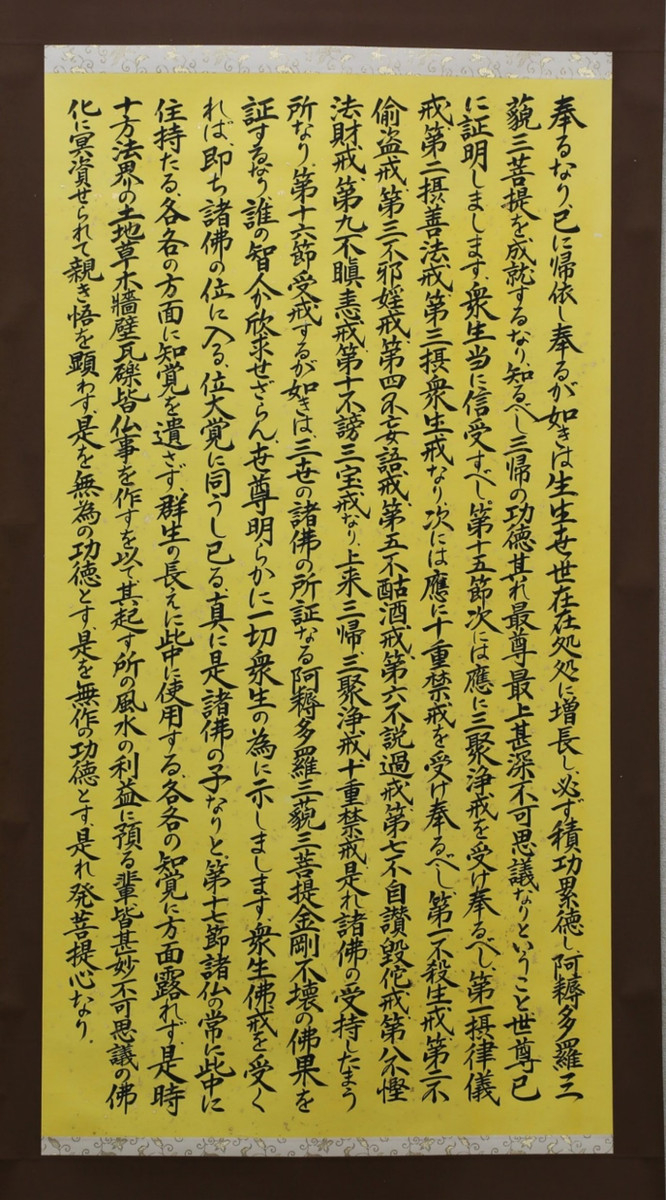 奉るなり、已に帰依し奉るが如きは生生世世在在処処に増長し、必ず積功累徳し、阿耨多羅三
藐三菩提を成就するなり、知るべし三帰の功徳其れ最尊最上甚深不可思議なりということ世尊已
に証明しまします、衆生当に信受すべし。第十五節次には應に三聚浄戒を受け奉るべし、第一摂律儀
戒、第二摂善法戒、第三摂衆生戒なり、次には應に十重禁戒を受け奉るべし、第一不殺生戒、第二不
偷盗戒、第三不邪婬戒、第四不妄語戒、第五不酤酒戒、第六不説過戒、第七不自讃毀佗戒、第八不慳
法財戒、第九不瞋恚戒、第十不謗三宝戒なり、上来三帰、三聚浄戒、十重禁戒、是れ諸佛の受持したまう
所なり、第十六節受戒するが如きは、三世の諸佛の所証なる阿耨多羅三藐三菩提金剛不壊の佛果を
証するなり、誰の智人か欣求せざらん、世尊明らかに一切衆生の為に示しまします、衆生佛戒を受く
れば、即ち諸佛の位に入る、位大覚に同うし已る、真に是諸佛の子なりと、第十七節諸仏の常に此中に
住持たる、各各の方面に知覚を遺さず、群生の長えに此中に使用する、各各の知覚に方面露れず、是時
十方法界の土地草木牆壁瓦礫皆仏事を作すを以て、其起す所の風水の利益に預る輩、皆甚妙不可思議の佛
化に冥資せられて親き悟を顕わす、是を無為の功徳とす、是を無作の功徳とす、是れ発菩提心なり、